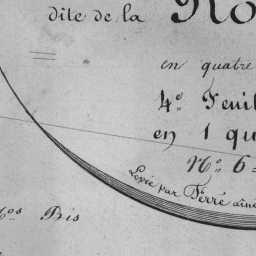 dite de la Ro
en quatre
4.º Feuil
en 1 qu
Nº 6=
Levée par Ferré aîné
Nos Bis